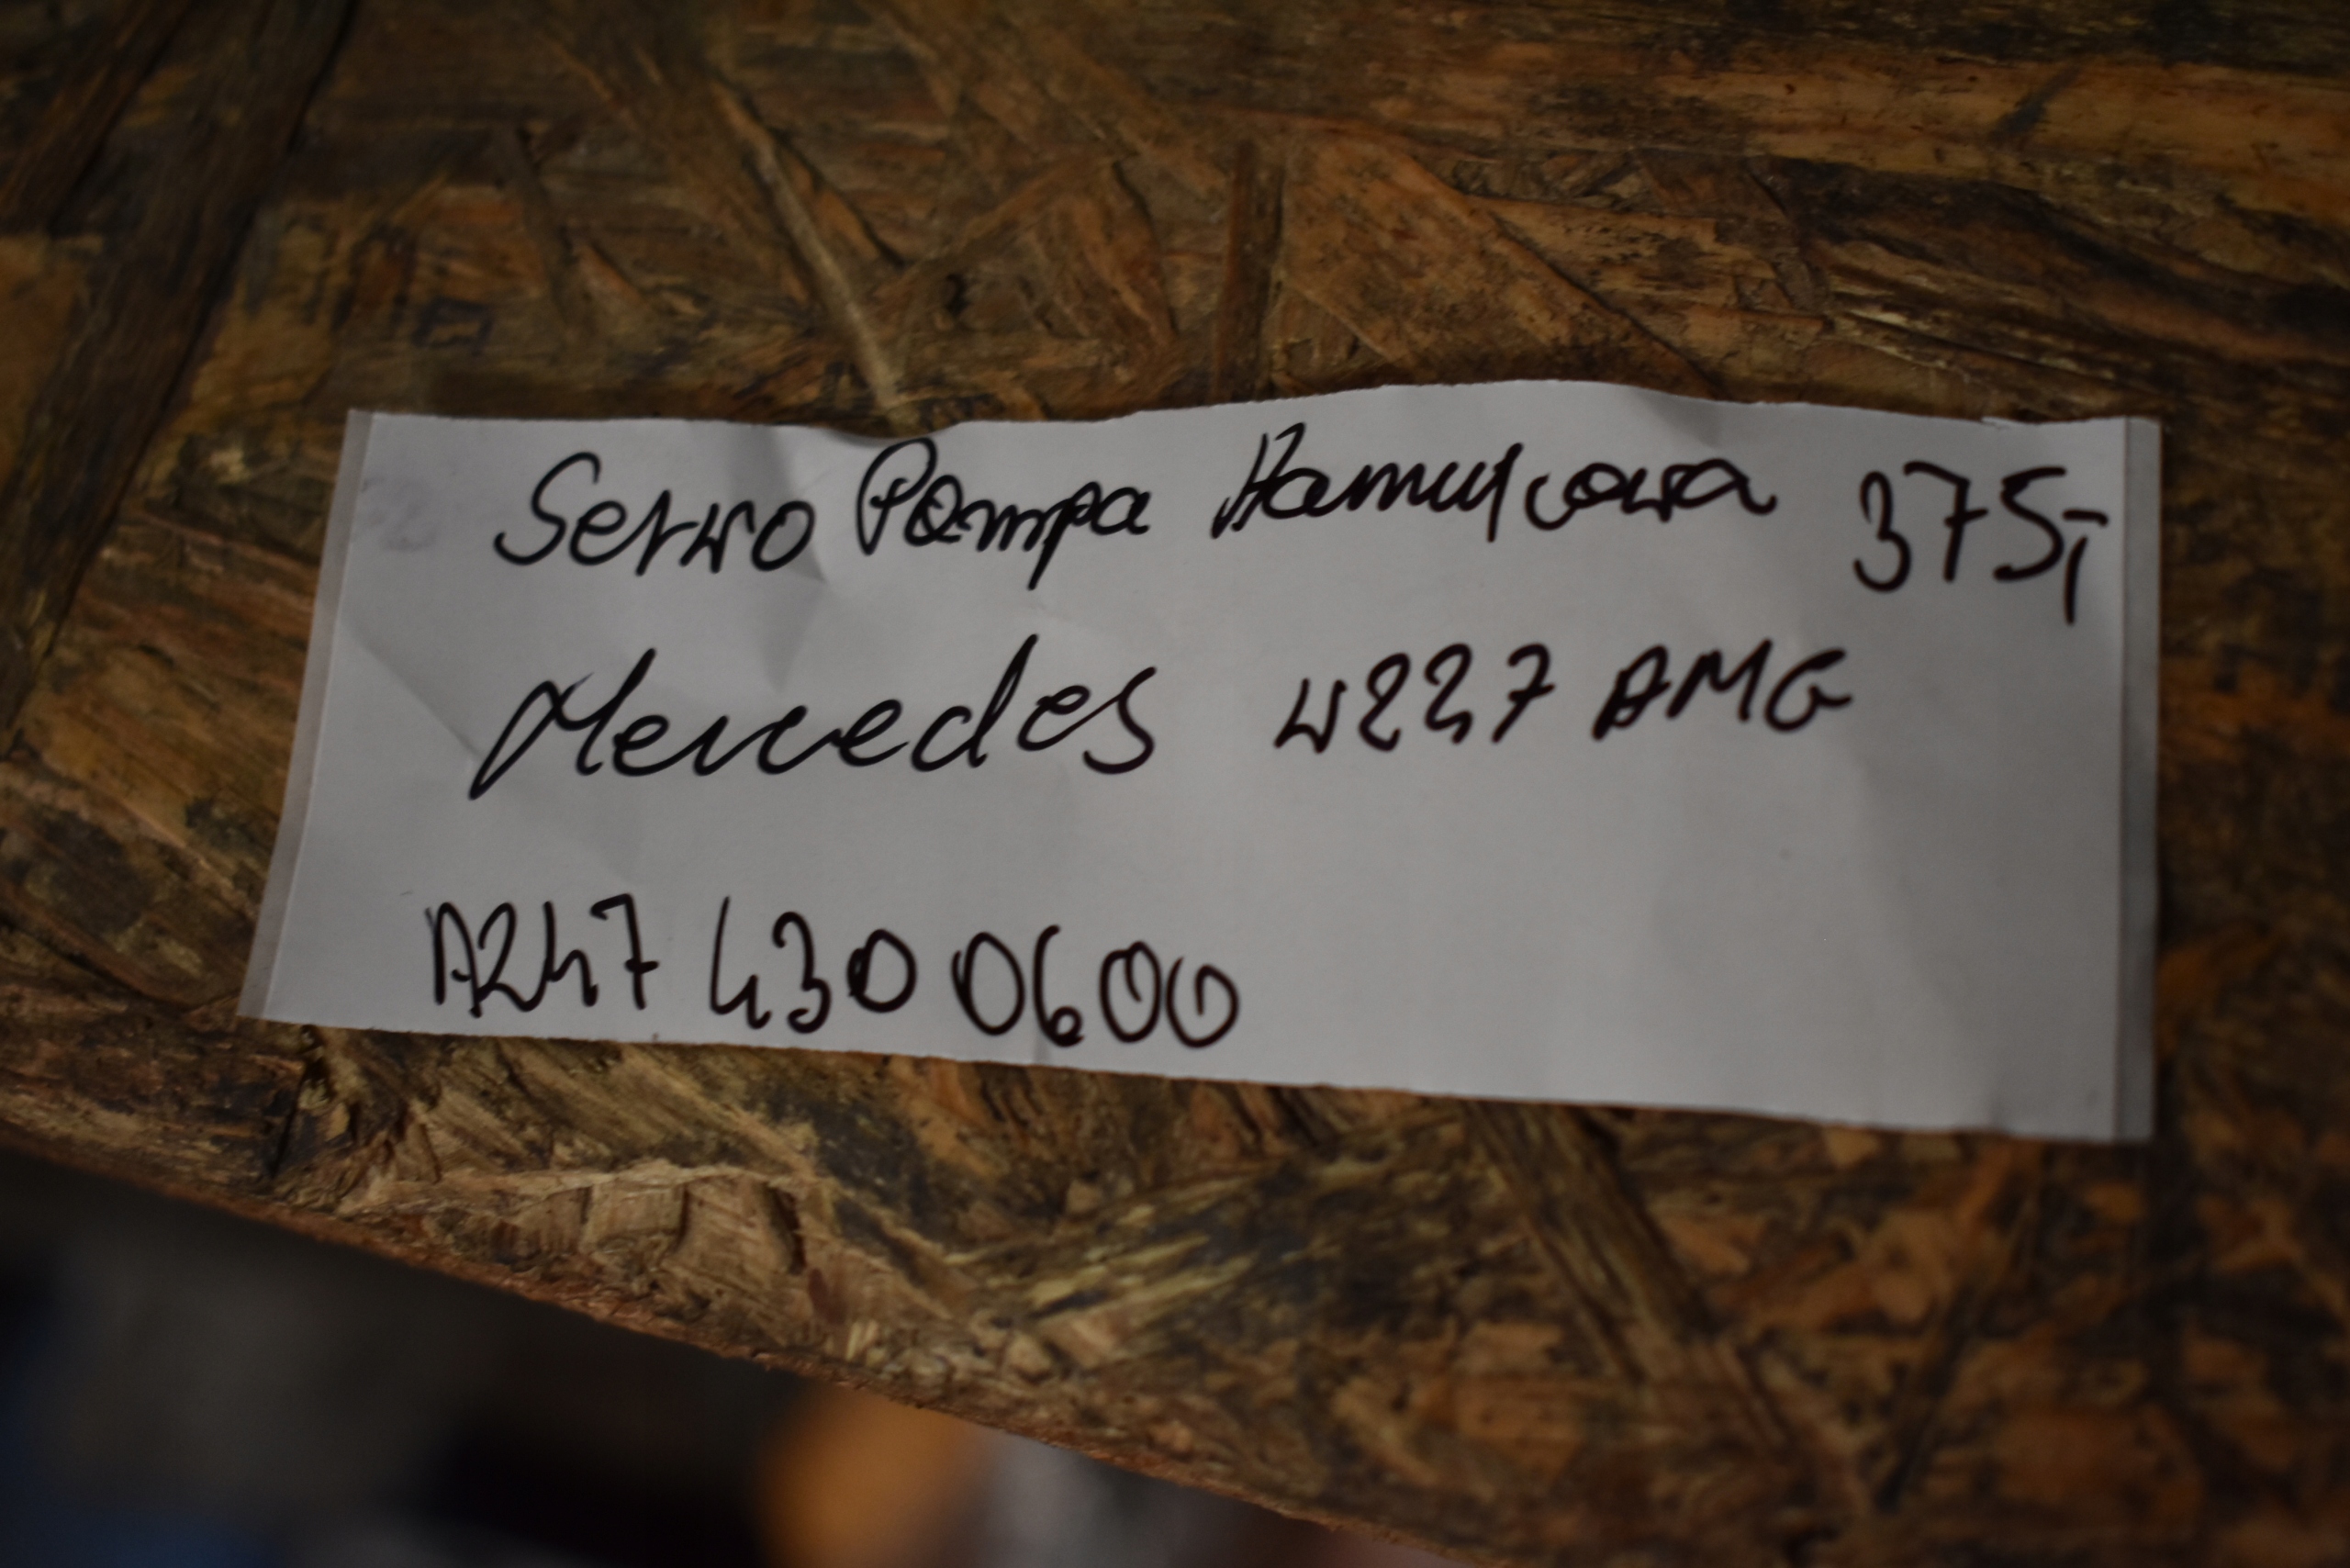 Serwo Pompa Hamulcowa 37ST
Mercedes W227 AMG
A247 430 0600